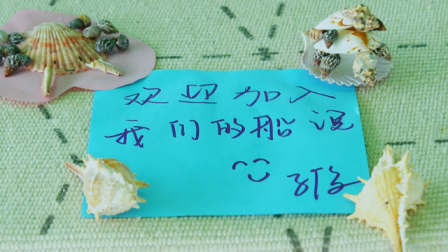 欢迎加入
我们的船说